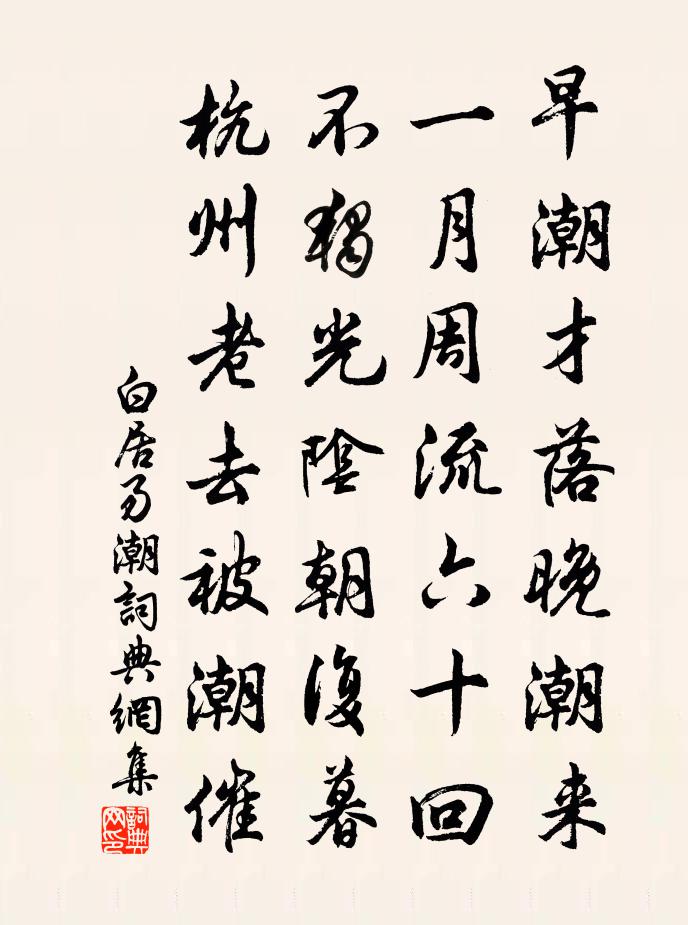 早潮才落晚潮来
一月周流六十回
不獨光陰朝復暮
杭州老去被潮催
白居易潮詞典網集
詞典網印